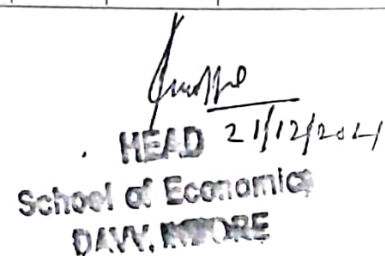 HEAD 21/12/2021
School of Economics
DAVV, INDORE